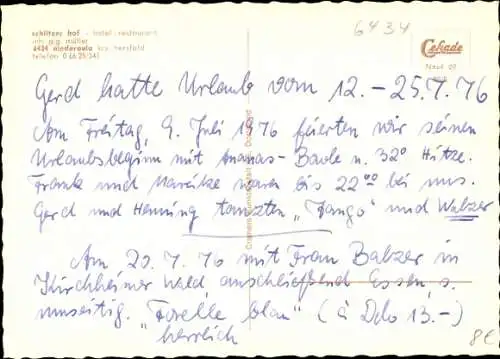 schlitzer hof - hotel - restaurant
inh. g.g. müller
6434 niederaula krs. hersfeld
telefon (0 66 25) 341
6434
Cekade
Gerd hatte Urlaub vom 12. - 25.7.76
Am Freitag, 9. Juli 1976 feierten wir seinen
Urlaubsbeginn mit Ananas-Bowle u. 32° Hitze.
Frank und Mareike waren bis 22⁰⁰ bei uns.
Gerd und Henning tanzten "Tango" und Walzer
Am 20.7.76 mit Frau Balzer in
Kirchheimer Wald, anschließend Essen, s.
umseitig. "Forelle blau" (à Ddo 13.-)
herrlich
8€